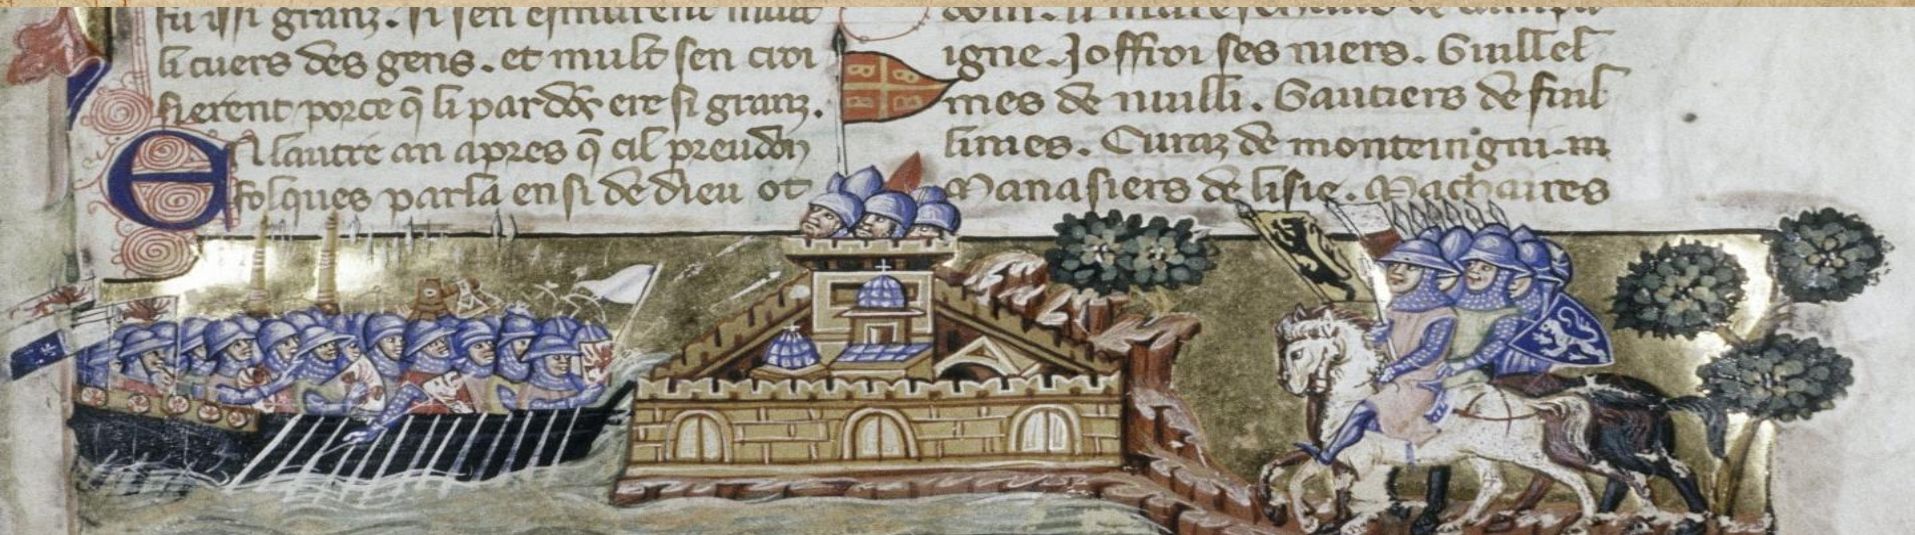 li cuers des gens. et mult sen croi
sierent porce q̃ li pardōs ere si granz.
En lautre an apres q̃ cil preudō
folques parla ensi de dieu ot
igne. Joffroi ses niers. Guillel
mes de nuilli. Gautiers de fuil
lunes. Euraz de monteingni.
Manasiers de lisle. Machaires